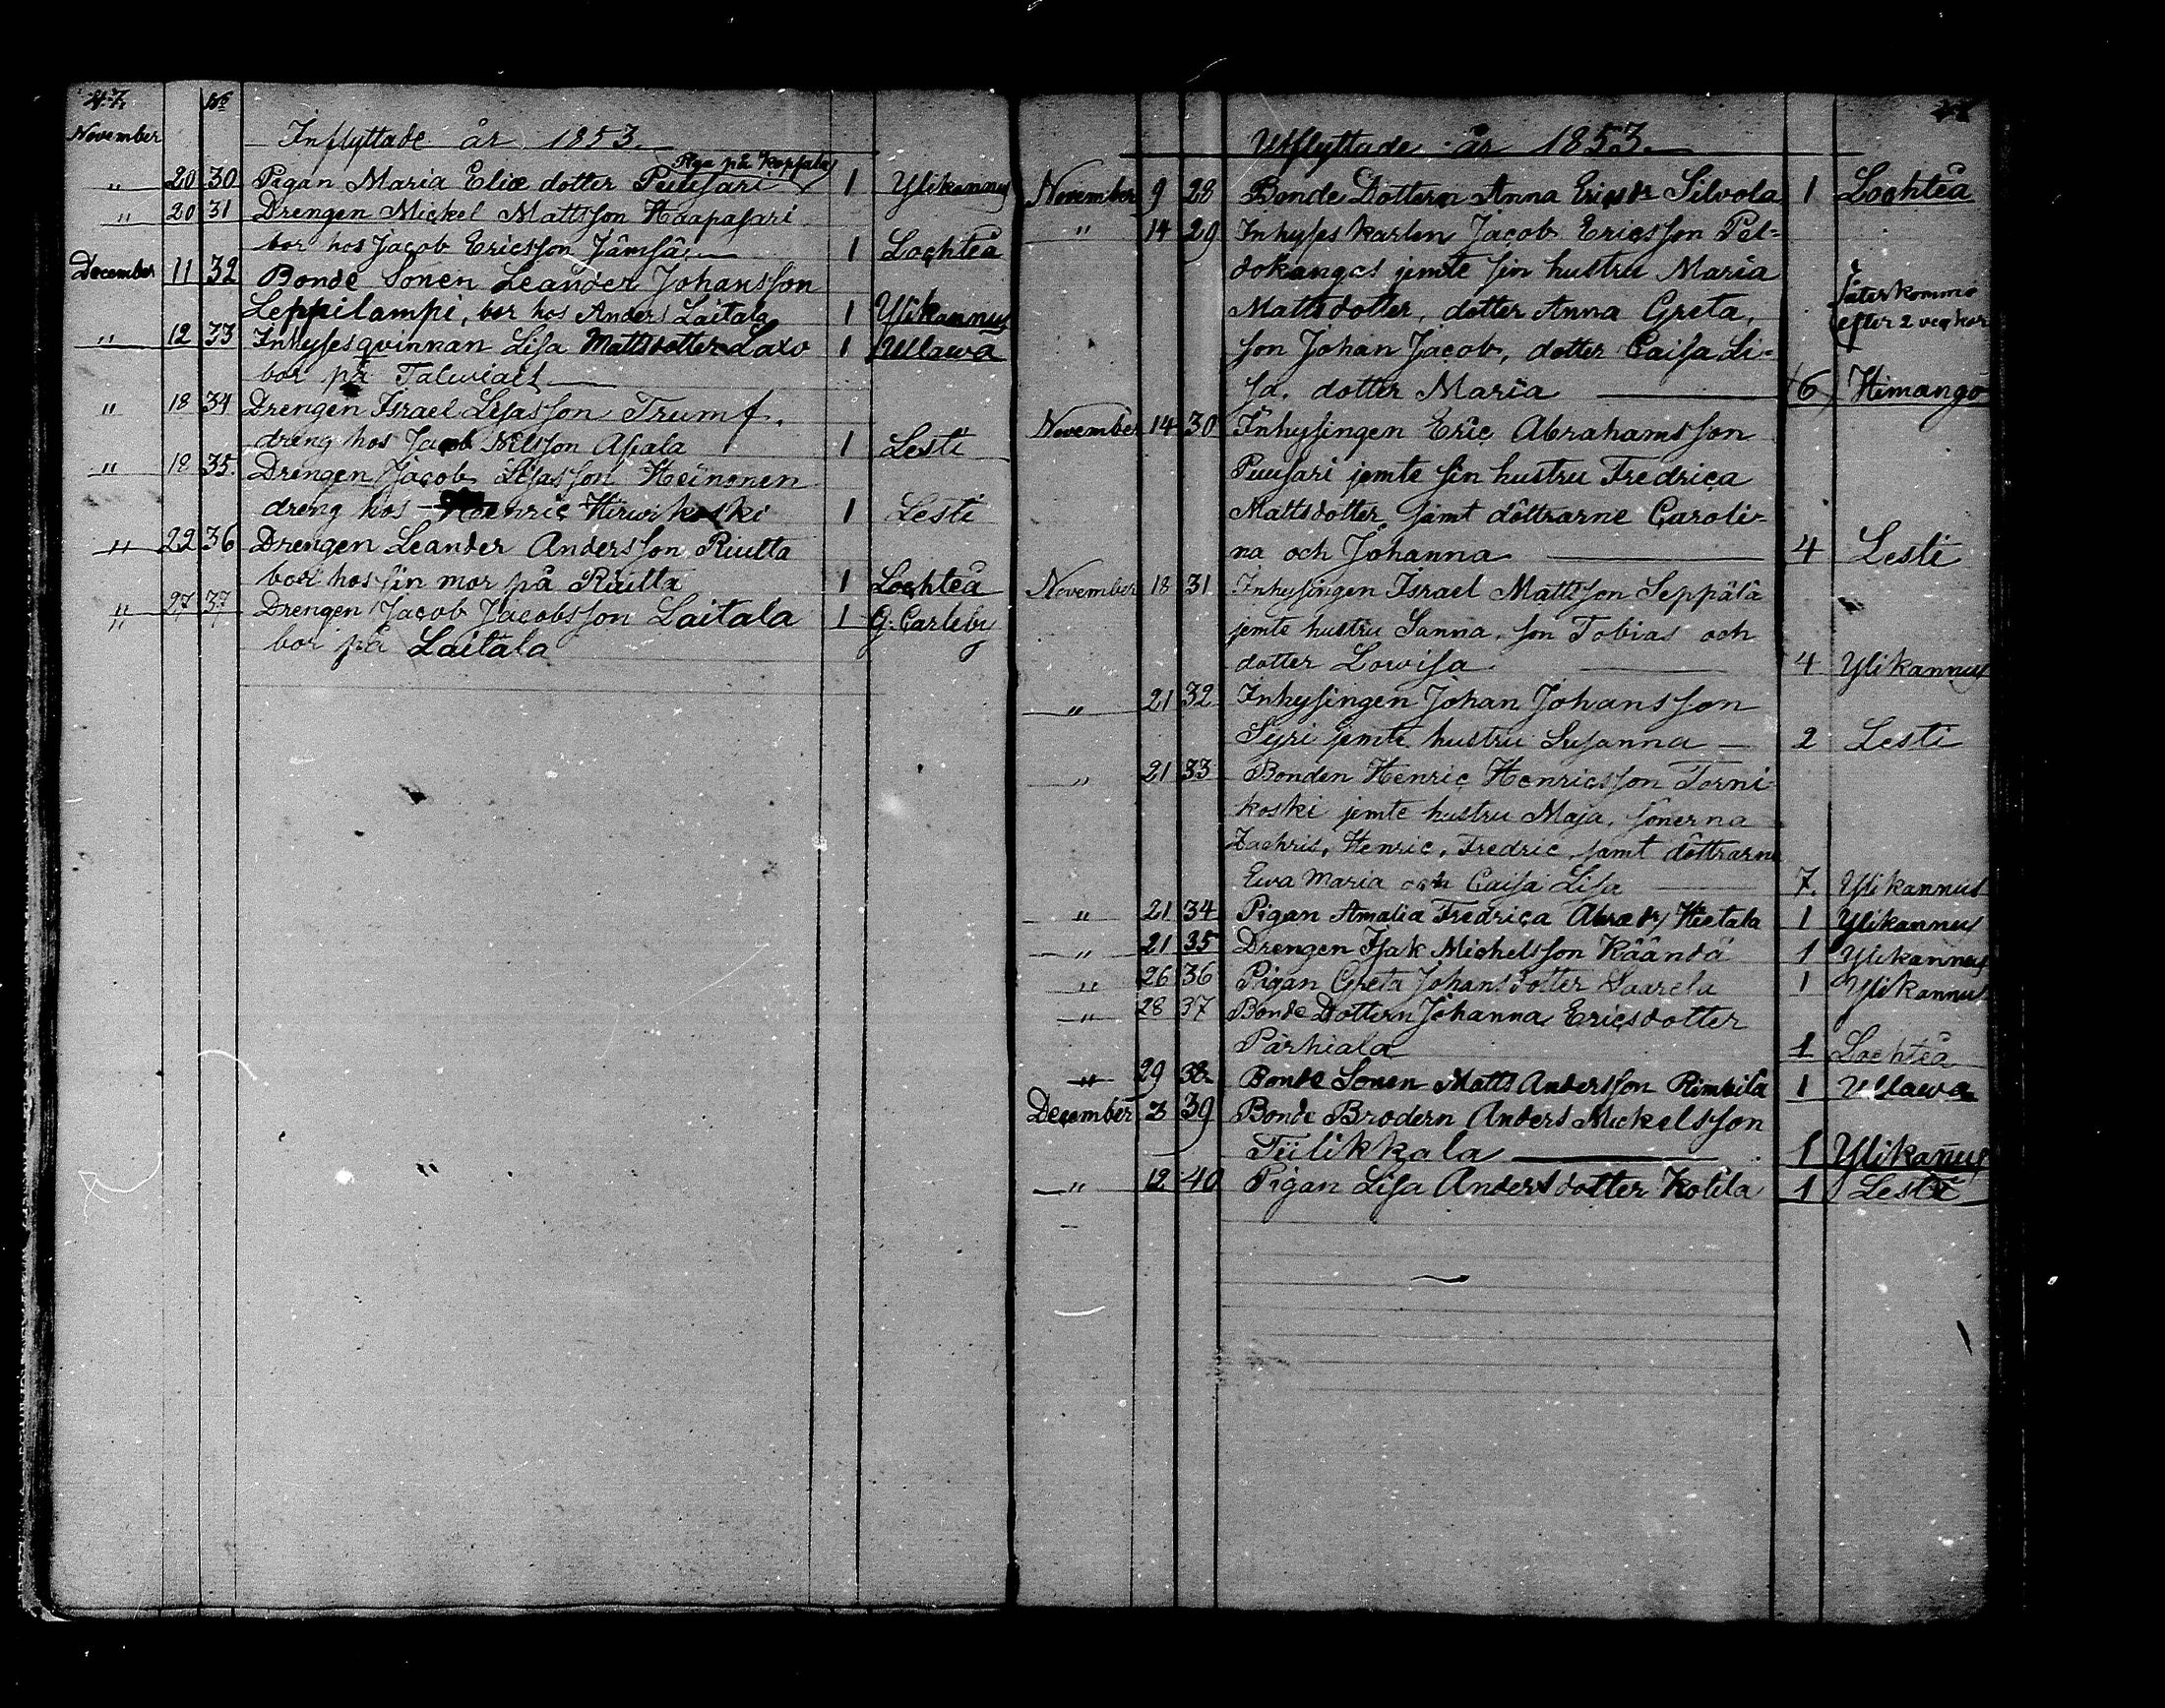 47.
No
November
Inflyttade år 1853.
Piga på Karhala
" 20 30 Pigan Maria Eliæ dotter Puusari 1 Ylikannus
" 20 31 Drengen Mickel Mattsson Haapasari
bor hos Jacob Ericsson Jämsä 1 Lochteå
December 11 32 Bonde Sonen Leander Johansson
Leppilampi, bor hos Anders Laitala 1 Ylikannus
" 12 33 Inhysesqvinnan Lisa Mattsdotter Laxo 1 Ullawa
bor på
" 18 34 Drengen Israel Lisasson Trumf.
dreng hos Jacob Nilsson Asiala 1 Lesti
" 18 35. Drengen Jacob Heinonen
dreng hos Henric Hirwikoski 1 Lesti
" 22 36 Drengen Leander Andersson Riutta
bor hos sin mor på Riutta 1 Lochteå
" 27 37 Drengen Jacob Jacobsson Laitala 1 G: Carleby
bor på Laitala
Utflyttade år 1853.
November 9 28 Bonde Dottern Anna Ericsdr Silvola 1 Lochteå
" 14 29 Inhyses karlen Jacob Ericsson Pel=
dokangas jemte sin hustru Maria
Mattsdotter, dotter Anna Greta,
återkommo
efter 2 veckor
son Johan Jacob, dotter Caisa Li=
sa, dotter Maria 6 Himango
November 14 30 Inhysingen Eric Abrahamsson
Puusari jemte sin hustru Fredrica
Mattsdotter, samt döttrarne Caroli=
na och Johanna 4 Lesti
November 18 31 Inhysingen Israel Mattsson Seppälä
jemte hustru Sanna, son Tobias och
dotter Lowisa 4 Ylikannus
" 21 32 Inhysingen Johan Johansson
Syri jemte hustru Susanna 2 Lesti
" 21 33 Bonden Henric Henricsson Torni=
koski jemte hustru Maja, sönerna
Zachris, Henric, Fredric, samt döttrarne
Ewa Maria och Caisa Lisa 7. Ylikannus
" 21 34 Pigan Amalia Fredrica Abradr Hietala 1 Ylikannus
" 21 35 Drengen Isak Michelsson Käändä 1 Ylikannus
" 26 36 Pigan Greta Johansdotter Saarela 1 Ylikannus
" 28 37 Bonde Dottern Johanna Ericsdotter
Parhiala 1 Lochteå
" 29 38 Bonde Sonen Matts Andersson Rimpilä 1 Ullawa
December 3 39 Bonde Brodern Anders Mickelsson
Tiilikkala 1 Ylikan̄us
" 12 40 Pigan Lisa Andersdotter Kotila 1 Lesti